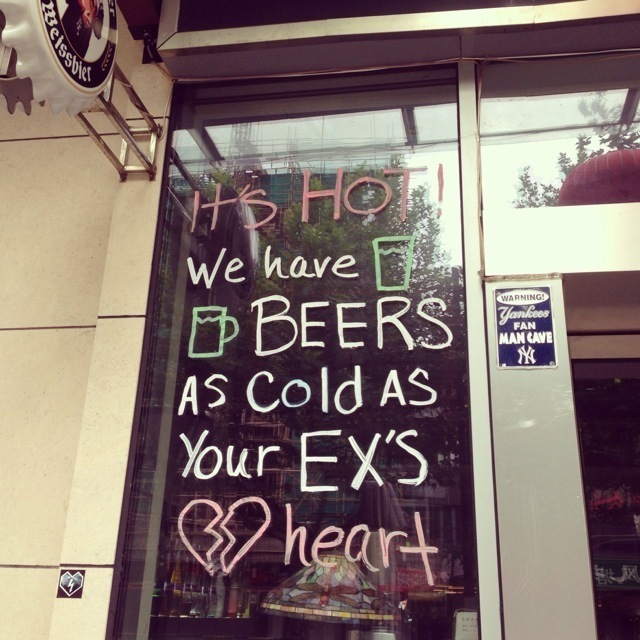 Weissbier
IT'S HOT!
We have
BEERS
AS Cold AS
Your EX'S
heart
WARNING!
Yankees
FAN
MAN CAVE
NY